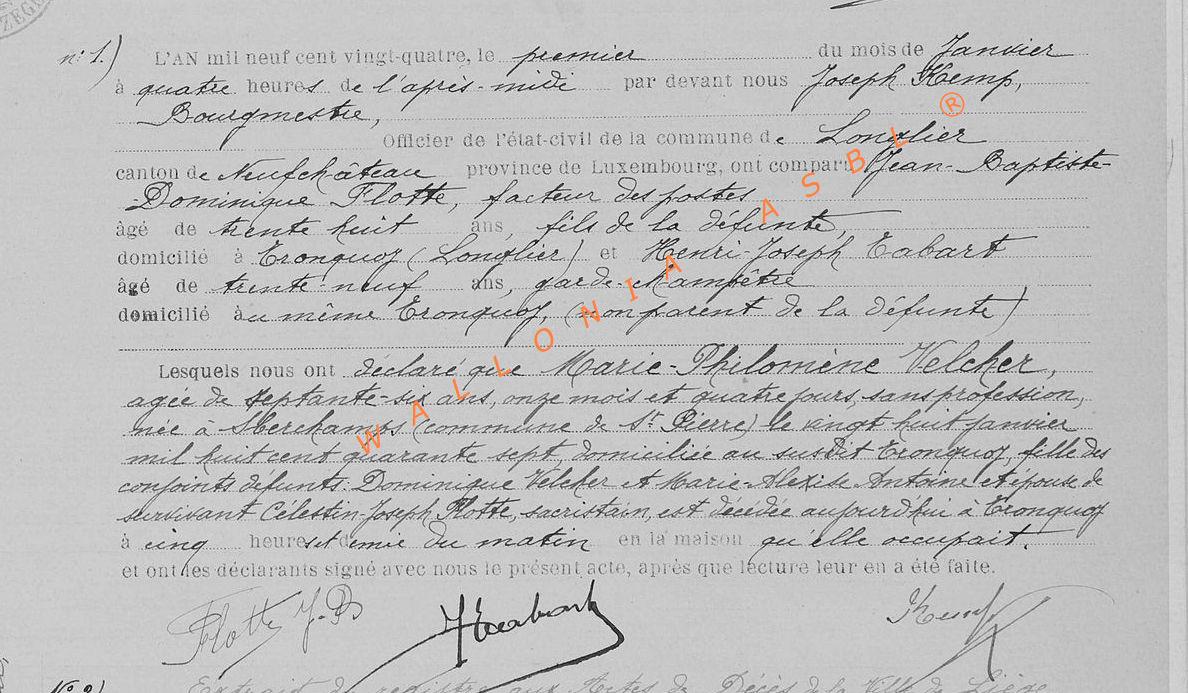 n: 1.) L'AN mil neuf cent vingt-quatre, le premier du mois de Janvier
à quatre heures de l'après-midi par devant nous Joseph Kemp,
Bourgmestre,
Officier de l'état-civil de la commune de Longlier
canton de Neufchâteau province de Luxembourg, ont comparu Jean-Baptiste-
-Dominique Flotte, facteur des postes
âgé de trente huit ans, fils de la défunte,
domicilié à Tronquoy (Longlier) et Henri-Joseph Tabart
âgé de trente-neuf ans, garde-champêtre
domicilié au même Tronquoy, (non parent de la défunte)
Lesquels nous ont déclaré que Marie-Philomène Velcher,
agée de septante-six ans, onze mois et quatre jours, sans profession,
née à Sberchamps (commune de St Pierre) le vingt huit janvier
mil huit cent quarante sept, domiciliée au susdit Tronquoy, fille des
conjoints défunts: Dominique Velcher et Marie-Alexise Antoine et épouse de
survivant Celestin-Joseph Flotte, sacristain, est décédée aujourd'hui à Tronquoy
à cinq heures et demie du matin en la maison qu'elle occupait.
et ont les déclarants signé avec nous le présent acte, après que lecture leur en a été faite.
Flotte J-B HTabart Kemp
No 2) Extrait du registre aux Actes de Décès de la Ville de Liège
WALLONIA ASBL ®